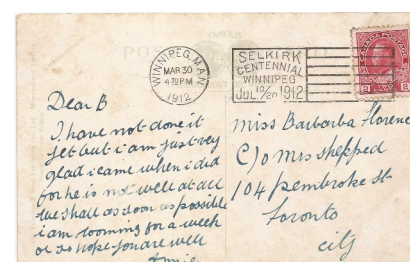 FAMOUS
WINNIPEG, MAN
MAR 30
4 30 PM
1912
SELKIRK
CENTENNIAL
WINNIPEG
JUL. 10/20 1912
CANADA POSTAGE
2 2
Dear B
I have not done it
yet but i am just very
glad i came when i did
for he is not well at all
we shall as soon as possible
i am rooming for a week
or so hope you are well
Annie
Miss Barbarba Florence
C/o Mrs shepped
104 pembroke st
Toronto
city